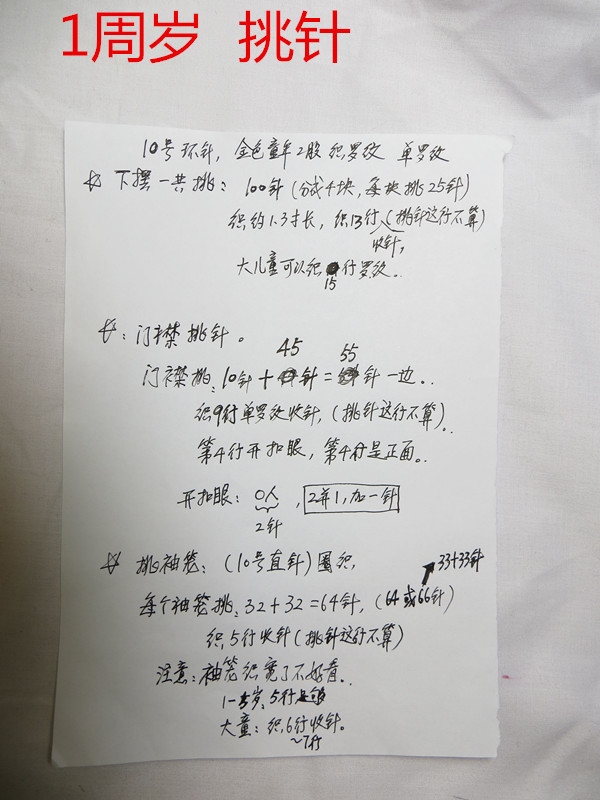 1周岁 挑针
10号环针, 金色童年2股织罗纹 单罗纹
☆ 下摆一共挑: 100针(分成4块, 每块挑25针)
织约1.3寸长, 织13行(挑针这行不算)
收针,
大儿童可以织 行罗纹..
15
☆: 门襟挑针。
45 55
门襟挑: 10针+ 针= 针一边..
织9行单罗纹收针, (挑针这行不算)..
第4行开扣眼, 第4行是正面..
开扣眼: O人, 2并1, 加一针
2针
☆ 挑袖笼: (10号直针)圈织,
33+33针
每个袖笼挑: 32+32=64针, (64或66针)
织5行收针(挑针这行不算)
注意: 袖笼织宽了不好看..
1-5岁, 5行足够
大童: 织6行收针。
~7行